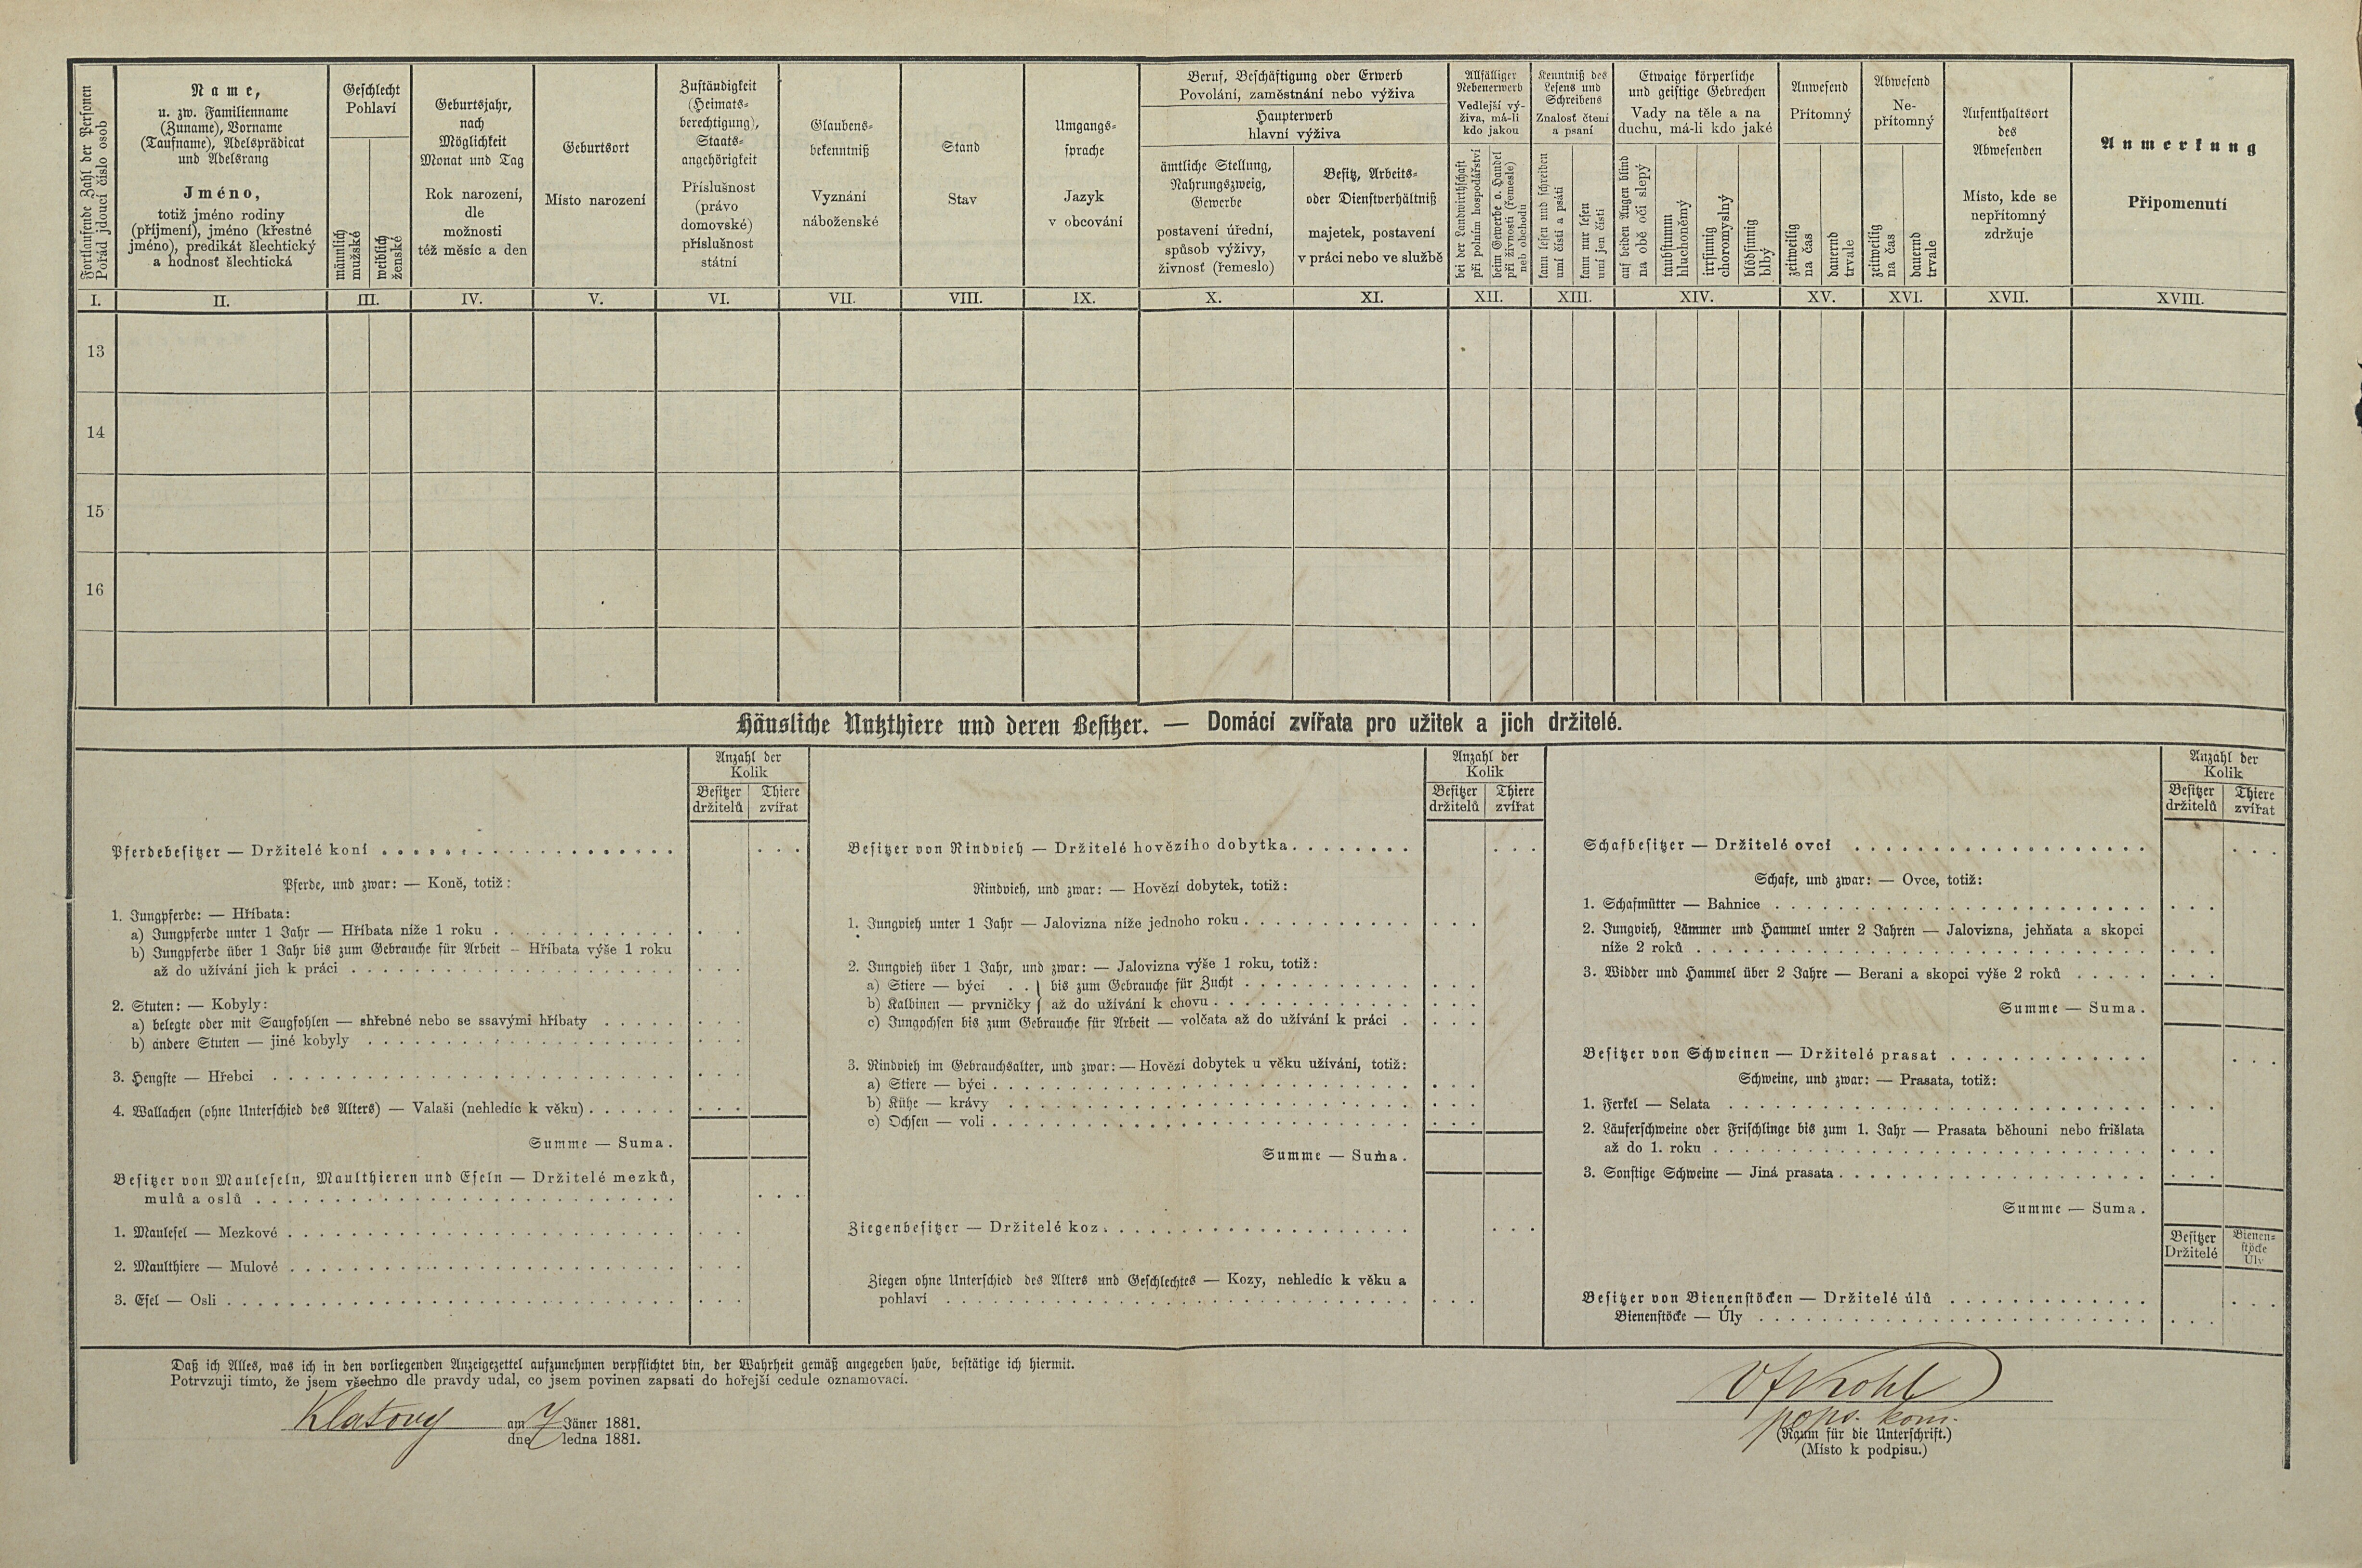 Fortlaufende Zahl der Personen
Pořád jdoucí číslo osob
Name,
u. zw. Familienname
(Zuname), Vorname
(Taufname), Adelsprädicat
und Adelsrang
Jméno,
totiž jméno rodiny
(příjmení), jméno (křestné
jméno), predikát šlechtický
a hodnosť šlechtická
Geschlecht
Pohlaví
männlich
mužské
weiblich
ženské
Geburtsjahr,
nach
Möglichkeit
Monat und Tag
Rok narození,
dle
možnosti
též měsíc a den
Geburtsort
Místo narození
Zuständigkeit
(Heimats-
berechtigung),
Staats-
angehörigkeit
Příslušnost
(právo
domovské)
příslušnost
státní
Glaubens-
bekenntniß
Vyznání
náboženské
Stand
Stav
Umgangs-
sprache
Jazyk
v obcování
Beruf, Beschäftigung oder Erwerb
Povolání, zaměstnání nebo výživa
Haupterwerb
hlavní výživa
ämtliche Stellung,
Nahrungszweig,
Gewerbe
postavení úřední,
spůsob výživy,
živnosť (řemeslo)
Besitz, Arbeits-
oder Dienstverhältniß
majetek, postavení
v práci nebo ve službě
Allfälliger
Nebenerwerb
Vedlejší vý-
živa, má-li
kdo jakou
bei der Landwirthschaft
při polním hospodářství
beim Gewerbe o. Handel
při živnosti (řemesle)
neb obchodu
Kenntniß des
Lesens und
Schreibens
Znalosť čtení
a psaní
kann lesen und schreiben
umí čísti a psáti
kann nur lesen
umí jen čísti
Etwaige körperliche
und geistige Gebrechen
Vady na těle a na
duchu, má-li kdo jaké
auf beiden Augen blind
na obě oči slepý
taubstumm
hluchoněmý
irrsinnig
choromyslný
blödsinnig
blbý
Anwesend
Přítomný
zeitweilig
na čas
dauernd
trvale
Abwesend
Ne-
přítomný
zeitweilig
na čas
dauernd
trvale
Aufenthaltsort
des
Abwesenden
Místo, kde se
nepřítomný
zdržuje
Anmerkung
Připomenutí
I. II. III. IV. V. VI. VII. VIII. IX. X. XI. XII. XIII. XIV. XV. XVI. XVII. XVIII.
13
14
15
16
Häusliche Nutzthiere und deren Besitzer. — Domácí zvířata pro užitek a jich držitelé.
Anzahl der
Kolik
Besitzer
držitelů
Thiere
zvířat
Pferdebesitzer — Držitelé koní
Pferde, und zwar: — Koně, totiž:
1. Jungpferde: — Hříbata:
a) Jungpferde unter 1 Jahr — Hříbata níže 1 roku
b) Jungpferde über 1 Jahr bis zum Gebrauche für Arbeit – Hříbata výše 1 roku
až do užívání jich k práci
2. Stuten: — Kobyly:
a) belegte oder mit Saugfohlen — shřebné nebo se ssavými hříbaty
b) andere Stuten — jiné kobyly
3. Hengste — Hřebci
4. Wallachen (ohne Unterschied des Alters) — Valaši (nehledíc k věku)
Summe — Suma.
Besitzer von Mauleseln, Maulthieren und Eseln — Držitelé mezků,
mulů a oslů
1. Maulesel — Mezkové
2. Maulthiere — Mulové
3. Esel — Osli
Anzahl der
Kolik
Besitzer
držitelů
Thiere
zvířat
Besitzer von Rindvieh — Držitelé hovězího dobytka
Rindvieh, und zwar: — Hovězí dobytek, totiž:
1. Jungvieh unter 1 Jahr — Jalovizna níže jednoho roku
2. Jungvieh über 1 Jahr, und zwar: — Jalovizna výše 1 roku, totiž:
a) Stiere — býci . . } bis zum Gebrauche für Zucht
b) Kalbinen — prvničky } až do užívání k chovu
c) Jungochsen bis zum Gebrauche für Arbeit — volčata až do užívání k práci
3. Rindvieh im Gebrauchsalter, und zwar: — Hovězí dobytek u věku užívání, totiž:
a) Stiere — býci
b) Kühe — krávy
c) Ochsen — voli
Summe — Suma.
Ziegenbesitzer — Držitelé koz
Ziegen ohne Unterschied des Alters und Geschlechtes — Kozy, nehledíc k věku a
pohlaví
Anzahl der
Kolik
Besitzer
držitelů
Thiere
zvířat
Schafbesitzer — Držitelé ovcí
Schafe, und zwar: — Ovce, totiž:
1. Schafmütter — Bahnice
2. Jungvieh, Lämmer und Hammel unter 2 Jahren — Jalovizna, jehňata a skopci
níže 2 roků
3. Widder und Hammel über 2 Jahre — Berani a skopci výše 2 roků
Summe — Suma.
Besitzer von Schweinen — Držitelé prasat
Schweine, und zwar: — Prasata, totiž:
1. Ferkel — Selata
2. Läuferschweine oder Frischlinge bis zum 1. Jahr — Prasata běhouni nebo frišlata
až do 1. roku
3. Sonstige Schweine — Jiná prasata
Summe — Suma.
Besitzer
Držitelé
Bienen-
stöcke
Úly
Besitzer von Bienenstöcken — Držitelé úlů
Bienenstöcke — Úly
Daß ich Alles, was ich in den vorliegenden Anzeigezettel aufzunehmen verpflichtet bin, der Wahrheit gemäß angegeben habe, bestätige ich hiermit.
Potrvzuji tímto, že jsem všechno dle pravdy udal, co jsem povinen zapsati do hořejší cedule oznamovací.
Klatovy am 7 Jäner 1881.
dne ledna 1881.
Krohl
pops. kom.
(Raum für die Unterschrift.)
(Místo k podpisu.)